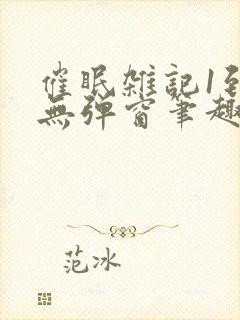 催眠雑記1至
無弹窗筆趣
范冰